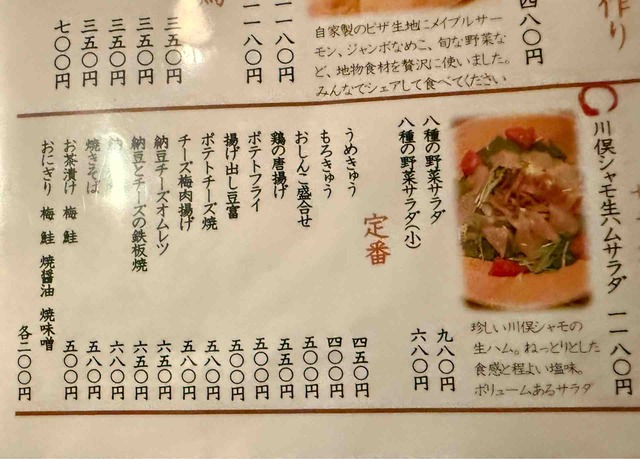 作り
四八〇円
自家製のピザ生地にメイプルサー
モン、ジャンボなめこ、旬な野菜な
ど、地物食材を贅沢に使いました。
みんなでシェアして食べてください
一一八〇円
一一八〇円
三五〇円
三五〇円
三五〇円
三五〇円
七〇〇円
川俣シャモ生ハムサラダ 一一八〇円
珍しい川俣シャモの
生ハム。ねっとりとした
食感と程よい塩味。
ボリュームあるサラダ
八種の野菜サラダ 九八〇円
八種の野菜サラダ(小) 六八〇円
定番
うめきゅう 四五〇円
もろきゅう 四〇〇円
おしんこ盛合せ 五〇〇円
鶏の唐揚げ 五五〇円
ポテトフライ 五〇〇円
揚げ出し豆富 五八〇円
ポテトチーズ焼 五八〇円
チーズ梅肉揚げ 五五〇円
納豆チーズオムレツ 六五〇円
納豆とチーズの鉄板焼 六五〇円
六八〇円
焼きそば 五八〇円
お茶漬け 梅 鮭 五〇〇円
おにぎり 梅 鮭 焼醤油 焼味噌 各二〇〇円